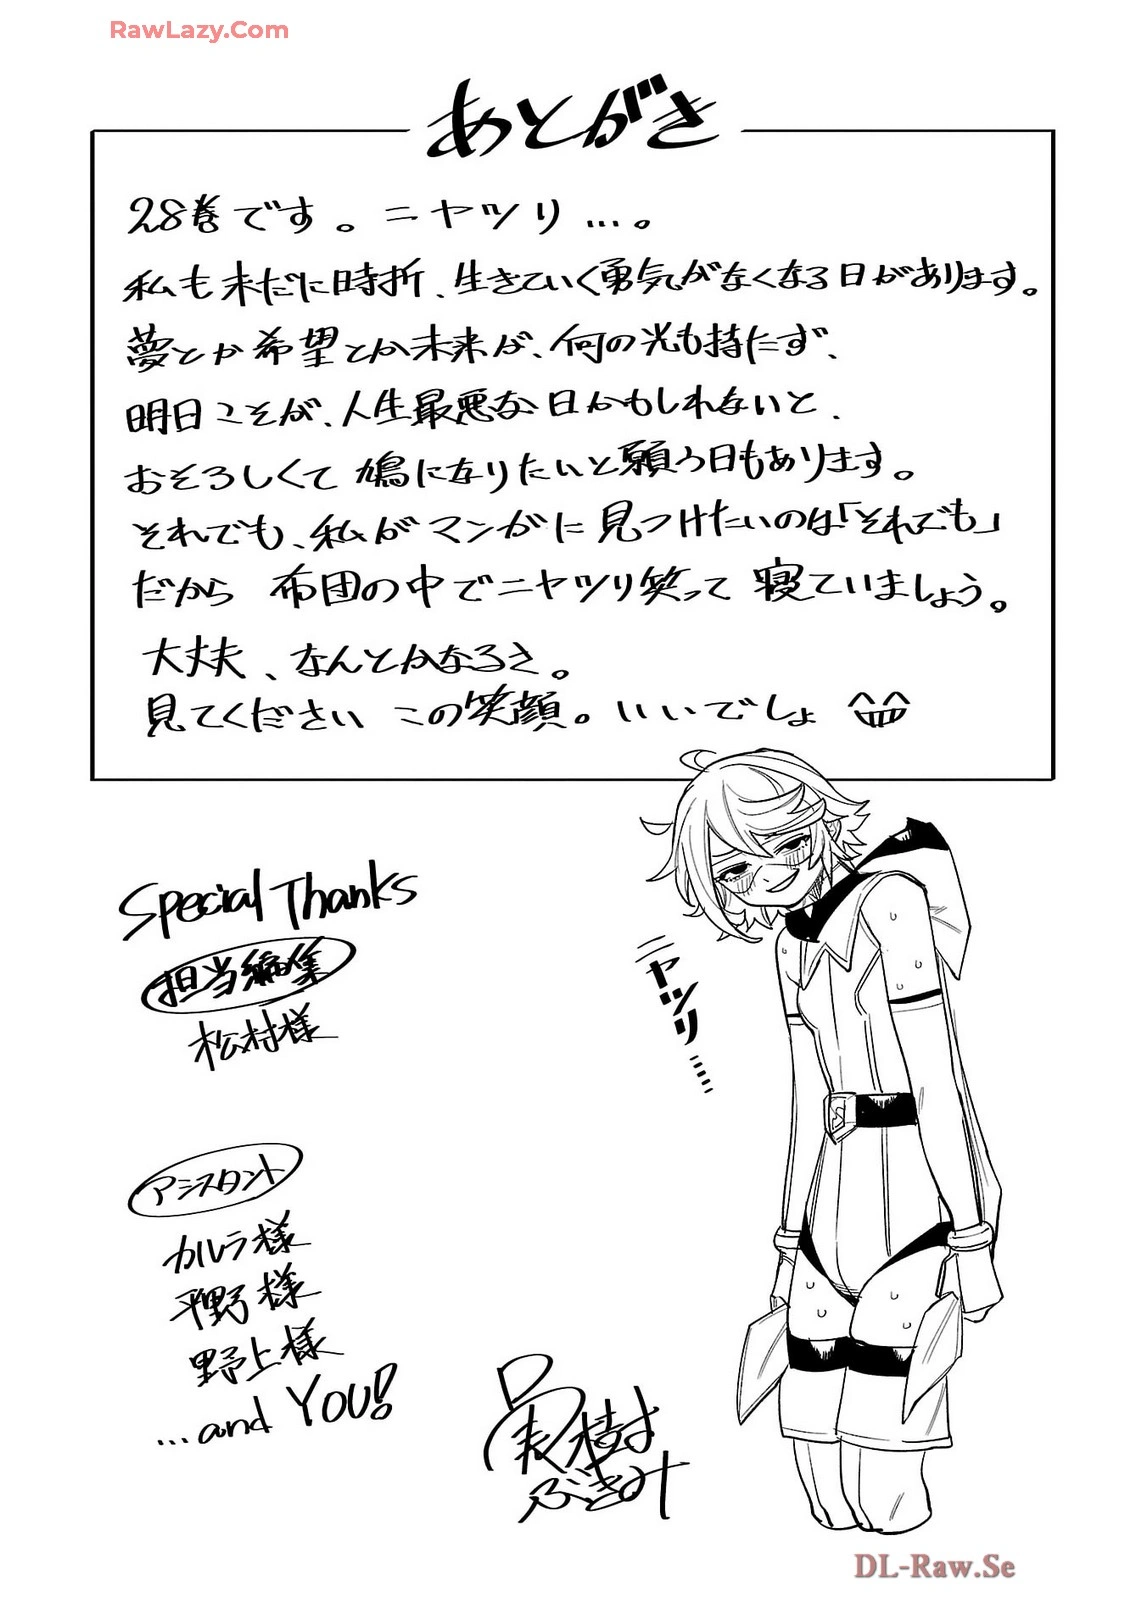 RawLazy.Com
あとがき
28巻です。ニヤツリ…。
私も未だに時折、生きていく勇気がなくなる日があります。
夢とか希望とか未来が、何の光も持たず、
明日こそが、人生最悪な日かもしれないと、
おそろしくて 鳩になりたいと願う日もあります。
それでも、私がマンガに見つけたいのは「それでも」
だから 布団の中でニヤツリ笑って 寝ていましょう。
大丈夫、なんとかなるさ。
見てください この笑顔。いいでしょ
Special Thanks
担当編集
松村様
ニヤツリ……
アシスタント
カルラ様
平野様
野上様
...and YOU!
実樹
ぶきみ
DL-Raw.Se